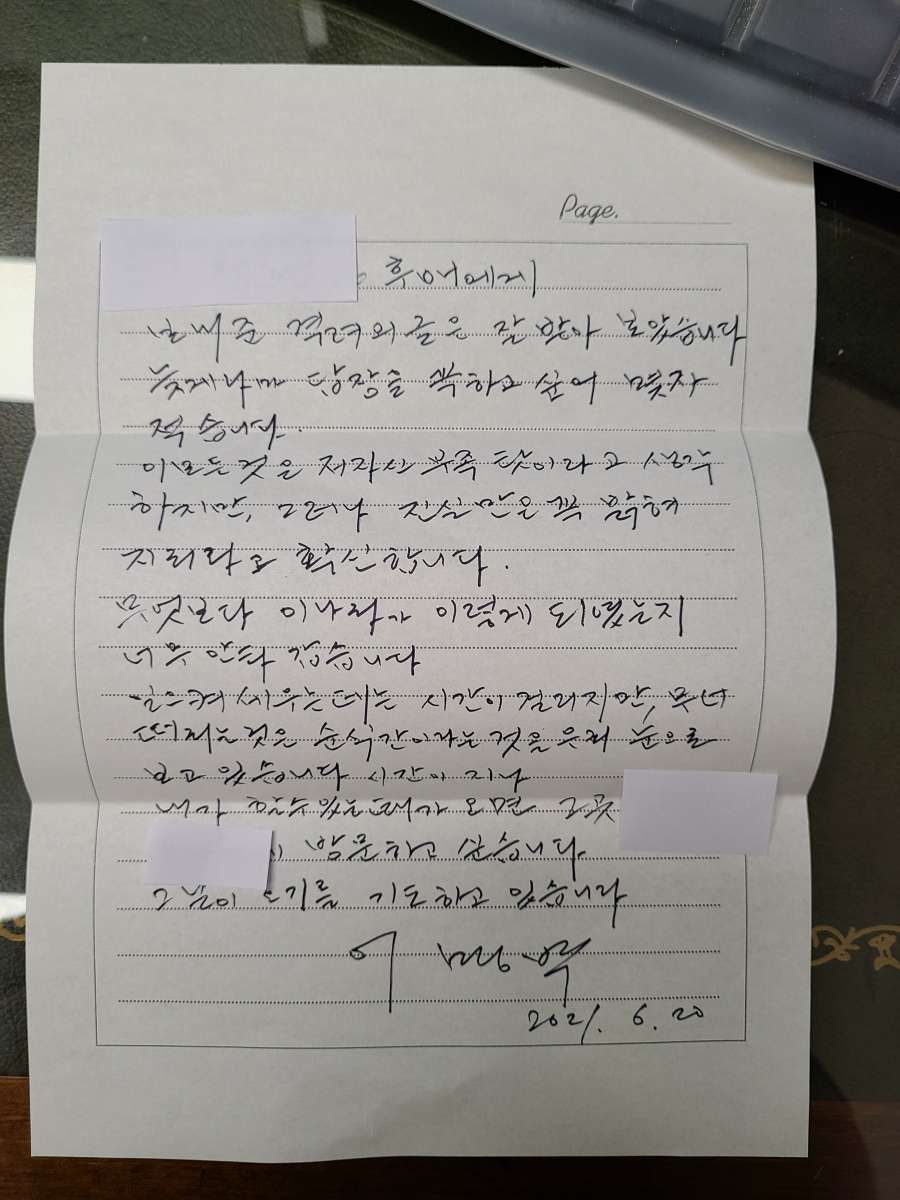 Page.
후배에게
보내준 격려의글은 잘 받아 보았습니다
늦게나마 답장을 꼭하고 싶어 몇자
적습니다.
이모든것은 저자신 부족 탓이라고 생각
하지만, 그러나 진실만은 꼭 밝혀
지리라고 확신합니다.
무엇보다 이나라가 이렇게 되였는지
너무 안타 깝습니다
일으켜 세우는데는 시간이 걸리지만, 무너
떠리는것은 순식간이라는 것을 우리 눈으로
보고 있습니다 시간이 지나
내가 할수있는 때가 오면 그곳
방문하고 싶습니다
그날이 오기를 기도하고 있습니다
이명박
2021. 6. 20